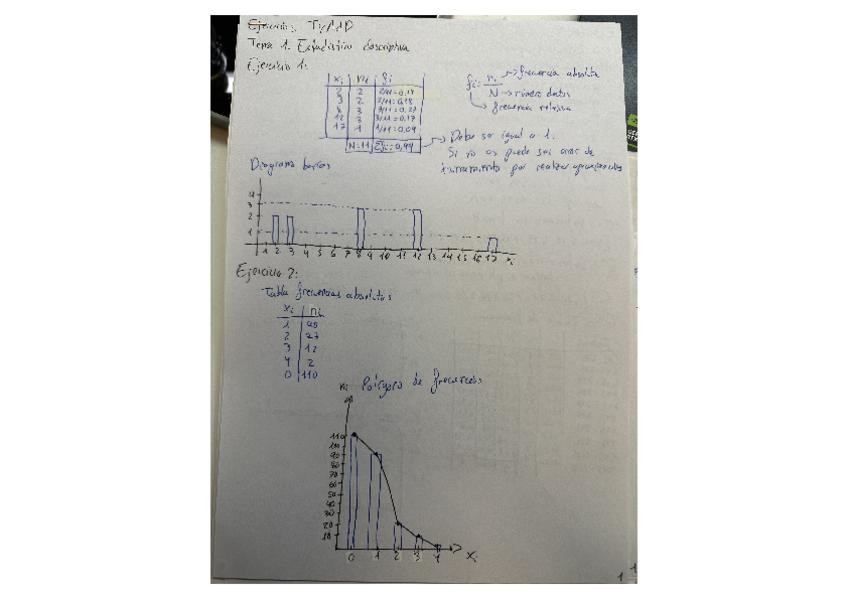 Ejercicios
Tema 1. Estadística descriptiva
Ejercicio 1:
xi ni fi
2 2 2/11=0,18
3 2 2/11=0,18
8 3 3/11=0,27
12 3 3/11=0,27
17 1 1/11=0,09
N=11 Σfi=0,99
fi = ni / N
→ frecuencia absoluta
→ número datos
→ frecuencia relativa
→ Debe ser igual a 1.
Si no es puede ser error de
por realizar aproximaciones
Diagrama barras
4
3
2
1
1 2 3 4 5 6 7 8 9 10 11 12 13 14 15 16 17 xi
Ejercicio 2:
Tabla frecuencias absolutas
xi ni
1
2 27
3 12
4 2
0 110
ni Polígono de frecuencias
110
100
90
80
70
60
50
40
30
20
10
0 1 2 3 4 xi
1